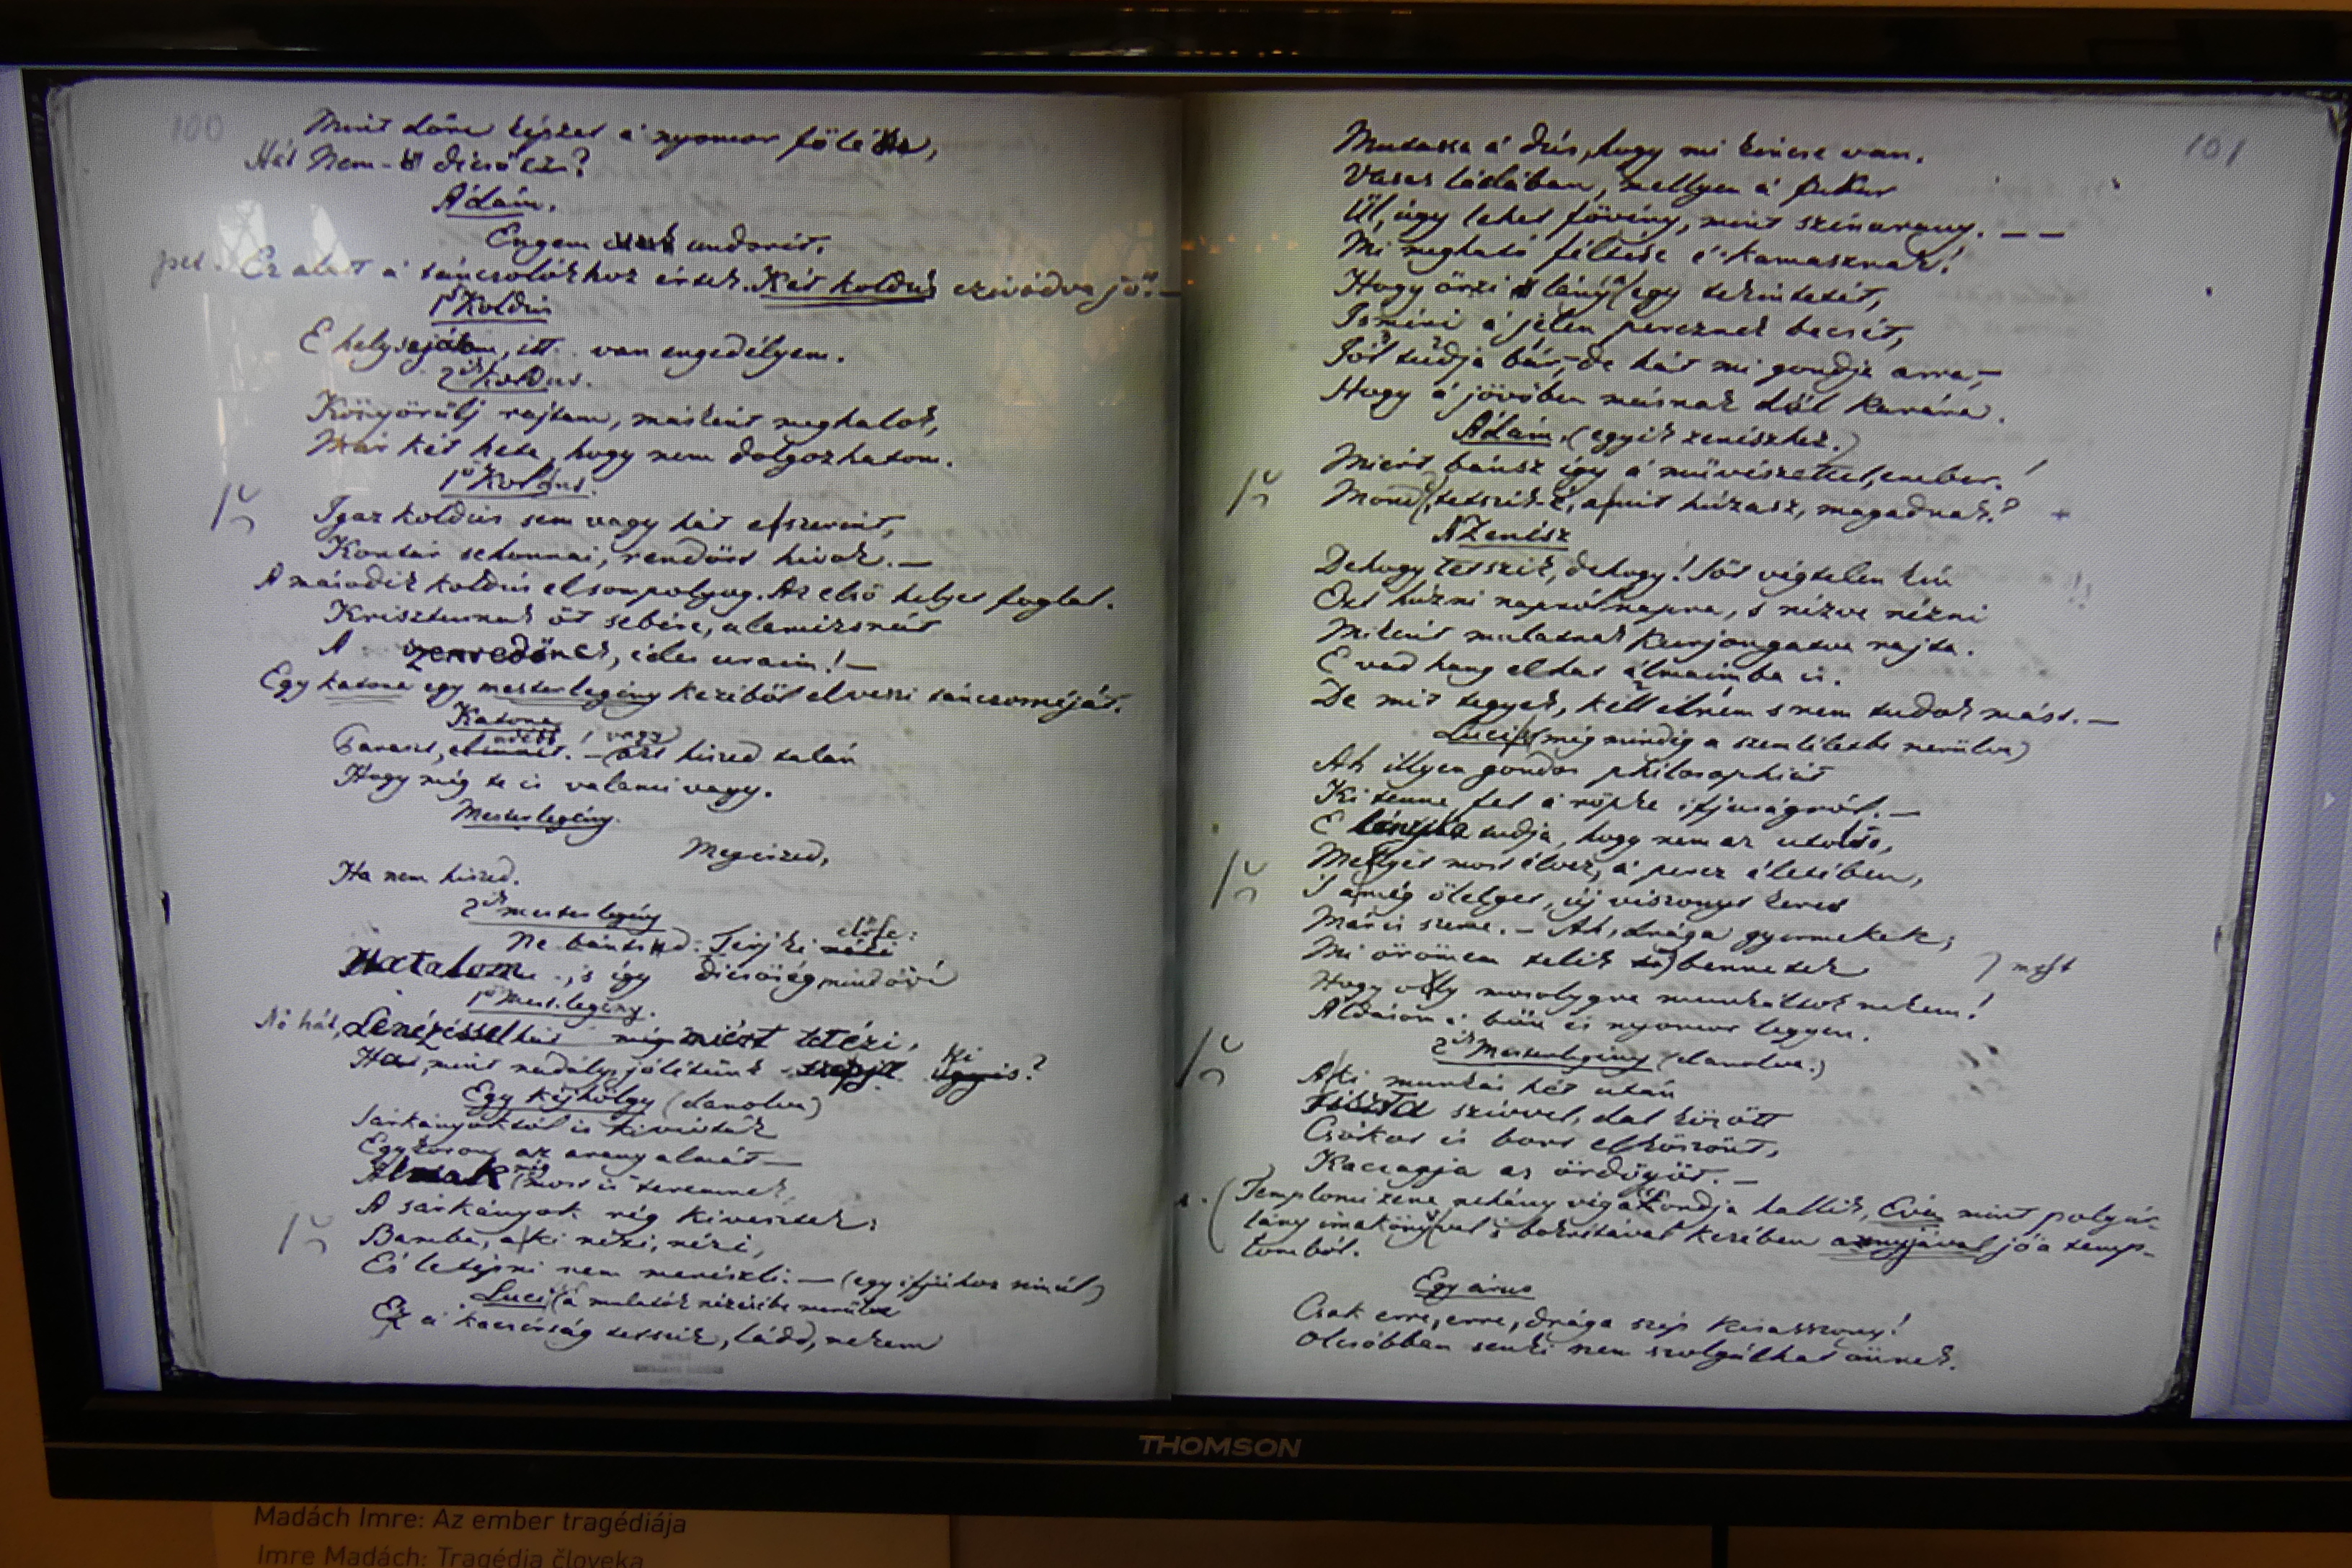 100
Mint dőre képzet a' nyomor fölé
Hát Nem- dicső ez?
Ádám.
Engem undorít.
Ez alatt a' tánczolókhoz értek. Két koldus czivódva jő. —
1ső Koldus
E hely sajátom, itt van engedélyem.
2ik koldus.
Könyörülj rajtam, máskint meghalok,
Már két hete, hogy nem dolgozhatom.
1ső Koldus.
Igaz koldus sem vagy hát e szerint,
Kontár sehonnai, rendőrt hivok. —
A második koldus elsompolyog. Az első helyet foglal.
Krisztusnak öt sebére, alamizsnát
A szenvedőnek, édes uraim! —
Egy katona egy mesterlegény kezéből elveszi tánczosnéját.
Katona
odébb! vagy
Paraszt, — azt hiszed talán
Hogy még te is valami vagy.
Mesterlegény.
Megérzed,
Ha nem hiszed.
2ik mesterlegény
előle:
Ne bántsd. Térj ki
Hatalom, s így dicsőség mindövé
1ső Mest. legény.
Nó hát, Lenézéssel hát még miért tetézi,
Ki
Ha, mint nadály, jólétünk úgyis?
Egy kéjhölgy (danolva)
Sárkányoktól is kivívták
Egykoron az arany almát —
még
Almák most is teremnek,
A sárkányok rég kivesztek;
Bamba, a ki nézi, nézi,
És letépni nem merészli. — (egy ifjúhoz simúl)
Luci (a mulatók nézésébe merülve
Ez a' kaczérság tetszik, ládd, nekem
101
Mutassa a' dús, hogy mi kincse van.
Vasas ládában, mellyen a' fukar
Űl, úgy lehet fövény, mint színarany. — —
Mi megható féltése e' kamasznak!
Hogy őrzi lány egy tekintetét,
Ismeri a' jelen percznek becsét,
Jól tudja bár, de hát mi gondja arra,
Hogy a' jövőben másnak dől karára.
Ádám. (egyik zenészhez.)
Miért bánsz így a' művészettel, ember!
Mond, tetszik-é, a mit húzasz, magadnak?
A Zenész
Dehogy tetszik, dehogy! Sőt végtelen kín
Ezt húzni napról napra, s nézve nézni
Miként mulatnak kurjongatva rajta.
E vad hang elhat álmaimba is.
De mit tegyek, kell élnem s nem tudok mást. —
Luci (még mindig a szemléletbe merülve)
Ah illyen gondos philosophiát
Ki tenne fel a' röpke ifjuságról. —
E lányka tudja, hogy nem az utolsó,
Mellyet most élvez, a' percz életében,
S a míg ölelget, új viszonyt keres
Már is szeme. — Ah, drága gyermekek,
Mi örömem telik bennetek
Hogy oly mosolygva munkáltok nekem!
Áldásom a' bűn és nyomor legyen.
2ik Mesterlegény (danolva.)
A ki munkás hét után
Tiszta szívvel, dal között
Csókot és bort elköszönt,
Kaczagja az ördögöt. —
(Templomi zene nehány végakkordja hallik, Éva mint polgár-
lány imakönyvvel s bokrétával kezében anyjával jő a temp-
lomból.
Egy árus
Csak erre, erre, drága szép kisasszony!
Olcsóbban senki nem szolgálhat önnek.
THOMSON
Madách Imre: Az ember tragédiája
Imre Madách: Tragédia človeka